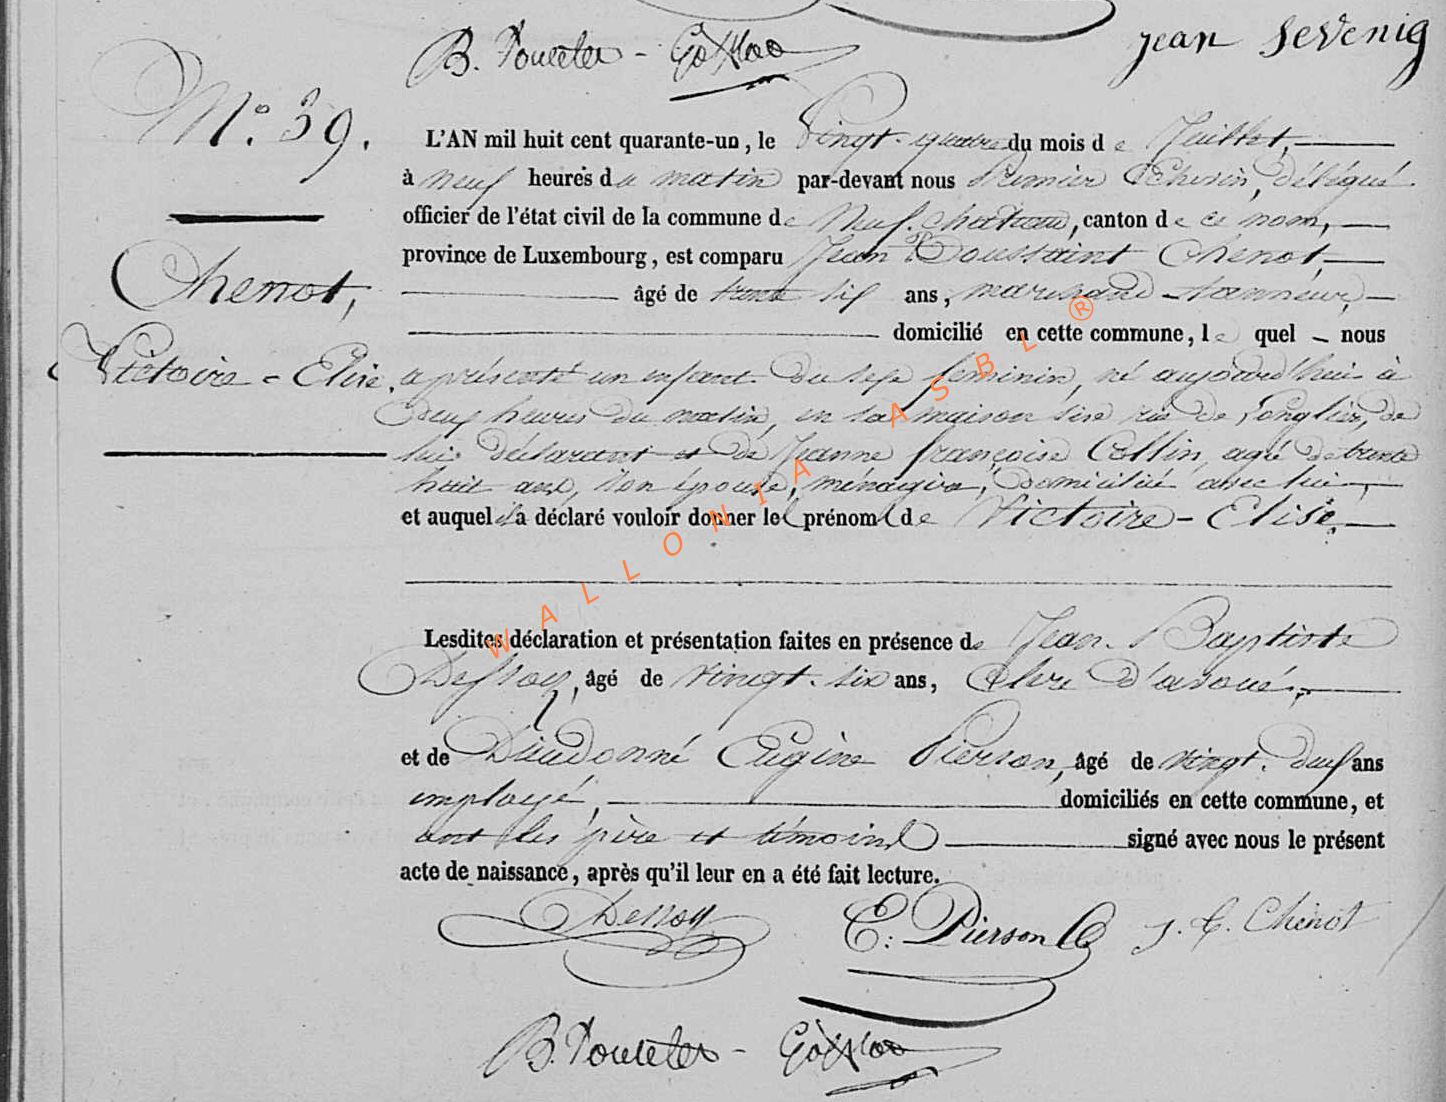 jean Sevenig
B. Pourcelet -
N.° 39.
L'AN mil huit cent quarante-un, le Vingt-quatre du mois de Juillet,
à neuf heures du matin par-devant nous Premier Echevin, délégué
officier de l'état civil de la commune de Neufchateau, canton de ce nom,
province de Luxembourg, est comparu Jean Toussaint Chenot,
Chenot,
âgé de trente six ans, marchand-tanneur,
domicilié en cette commune, le quel nous
Victoire-Elise.
a présenté un enfant du sexe feminin, né aujourd'hui à
deux heures du matin, en sa maison sise rue de Longlier, de
lui déclarant et de Jeanne françoise Collin, agée de trente
huit ans, son épouse, ménagère, domiciliée avec lui,
et auquel il a déclaré vouloir donner les prénoms de Victoire-Elise.
Lesdites déclaration et présentation faites en présence de Jean-Baptiste
Dessoy, âgé de vingt-six ans, Clerc d'avoué,
et de Dieudonné Eugène Pierson, âgé de vingt-deux ans
employé, domiciliés en cette commune, et
ont les père et témoins signé avec nous le présent
acte de naissance, après qu'il leur en a été fait lecture.
Dessoy E. Pierson J. T. Chenot
B. Pourcelet -
WALLONIA ASBL ®